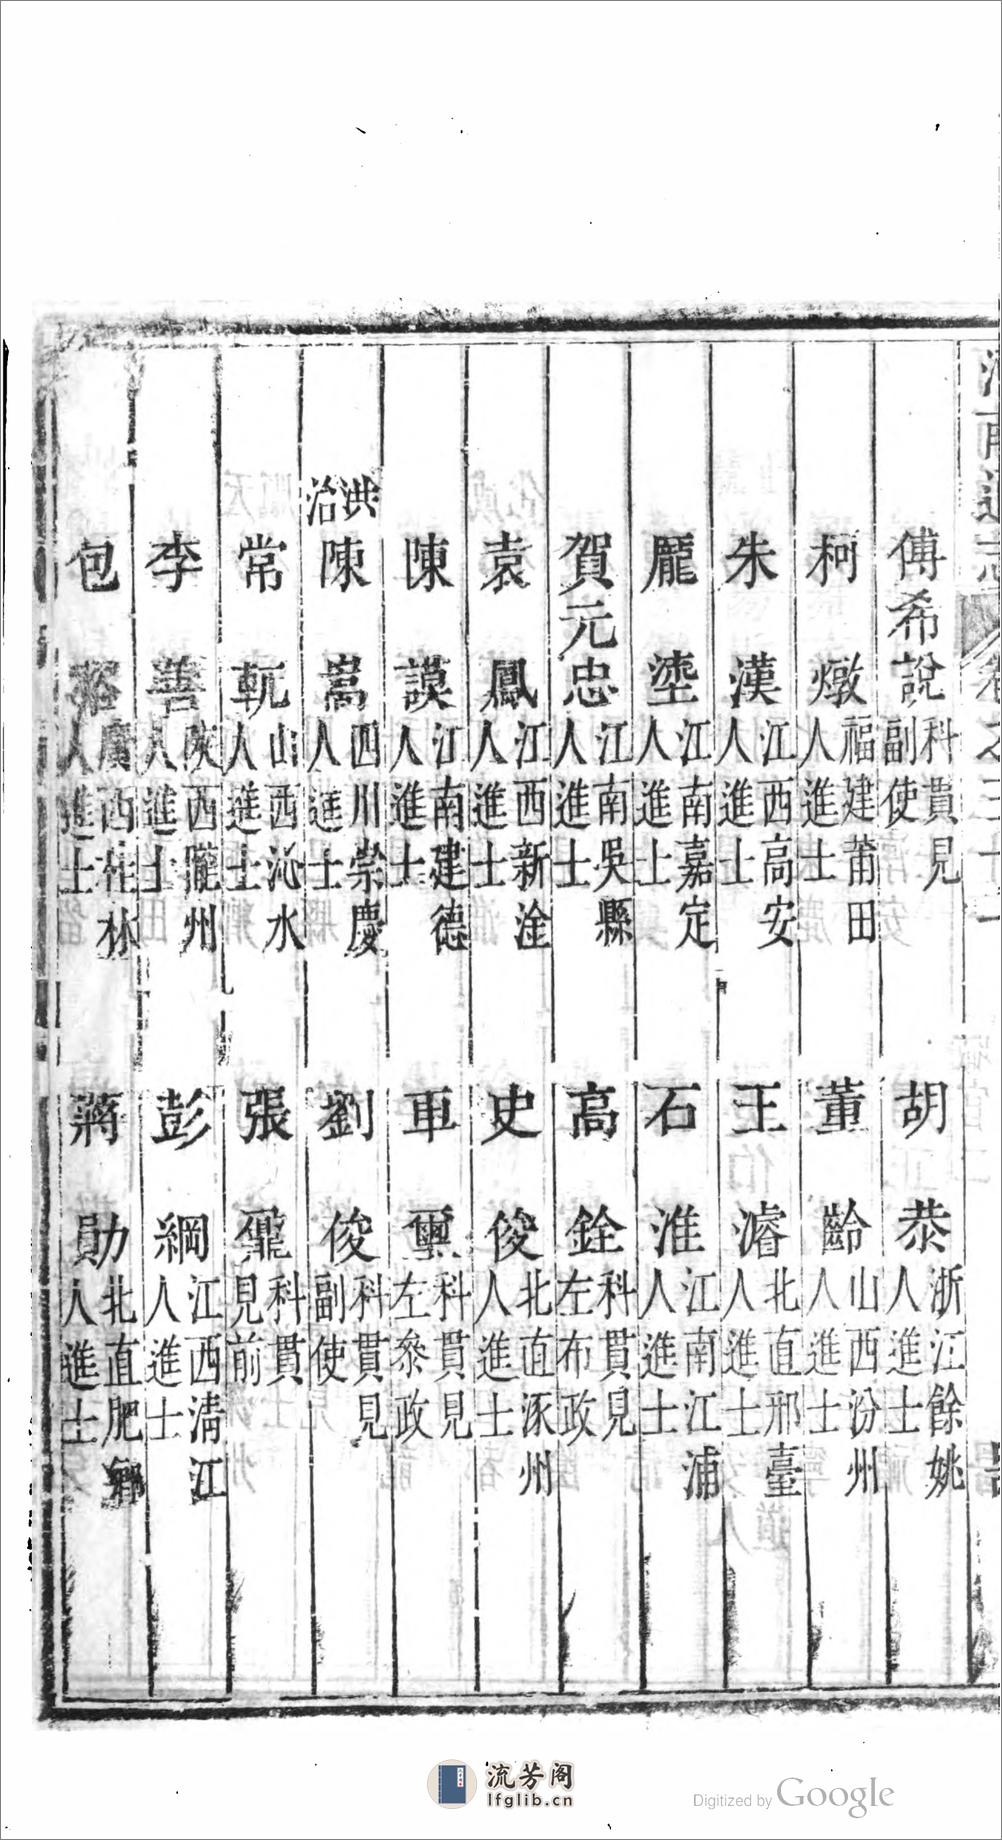 傅希說科貫見副使 胡恭浙江餘姚人進士
柯燉福建莆田人進士 董齡山西汾州人進士
朱漢江西高安人進士 王濬北直邢臺人進士
龐塣江南嘉定人進士 石淮江南江浦人進士
賀元忠江南吳縣人進士 高銓科貫見左布政
袁鳳江西新淦人進士 史俊北直涿州人進士
陳謨江南建德人進士 車璽科貫見左參政
洪治
陳嵩四川崇慶人進士 劉俊科貫見副使
常軏山西沁水人進士 張鼐科貫見前
李善陜西隴州人進士 彭綱江西清江人進士
包裕廣西桂林人進士 蔣勛北直肥鄉人進士
流芳阁
lfglib.cn
Digitized by Google